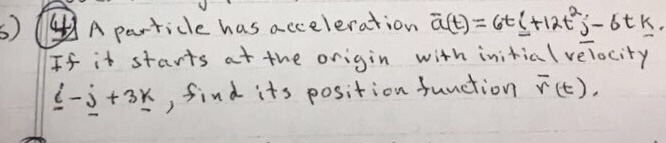 5) (4) A particle has acceleration ā(t)=6t i+12t² j-6t k.
If it starts at the origin with initial velocity
i-j+3k, find its position function r̄(t).